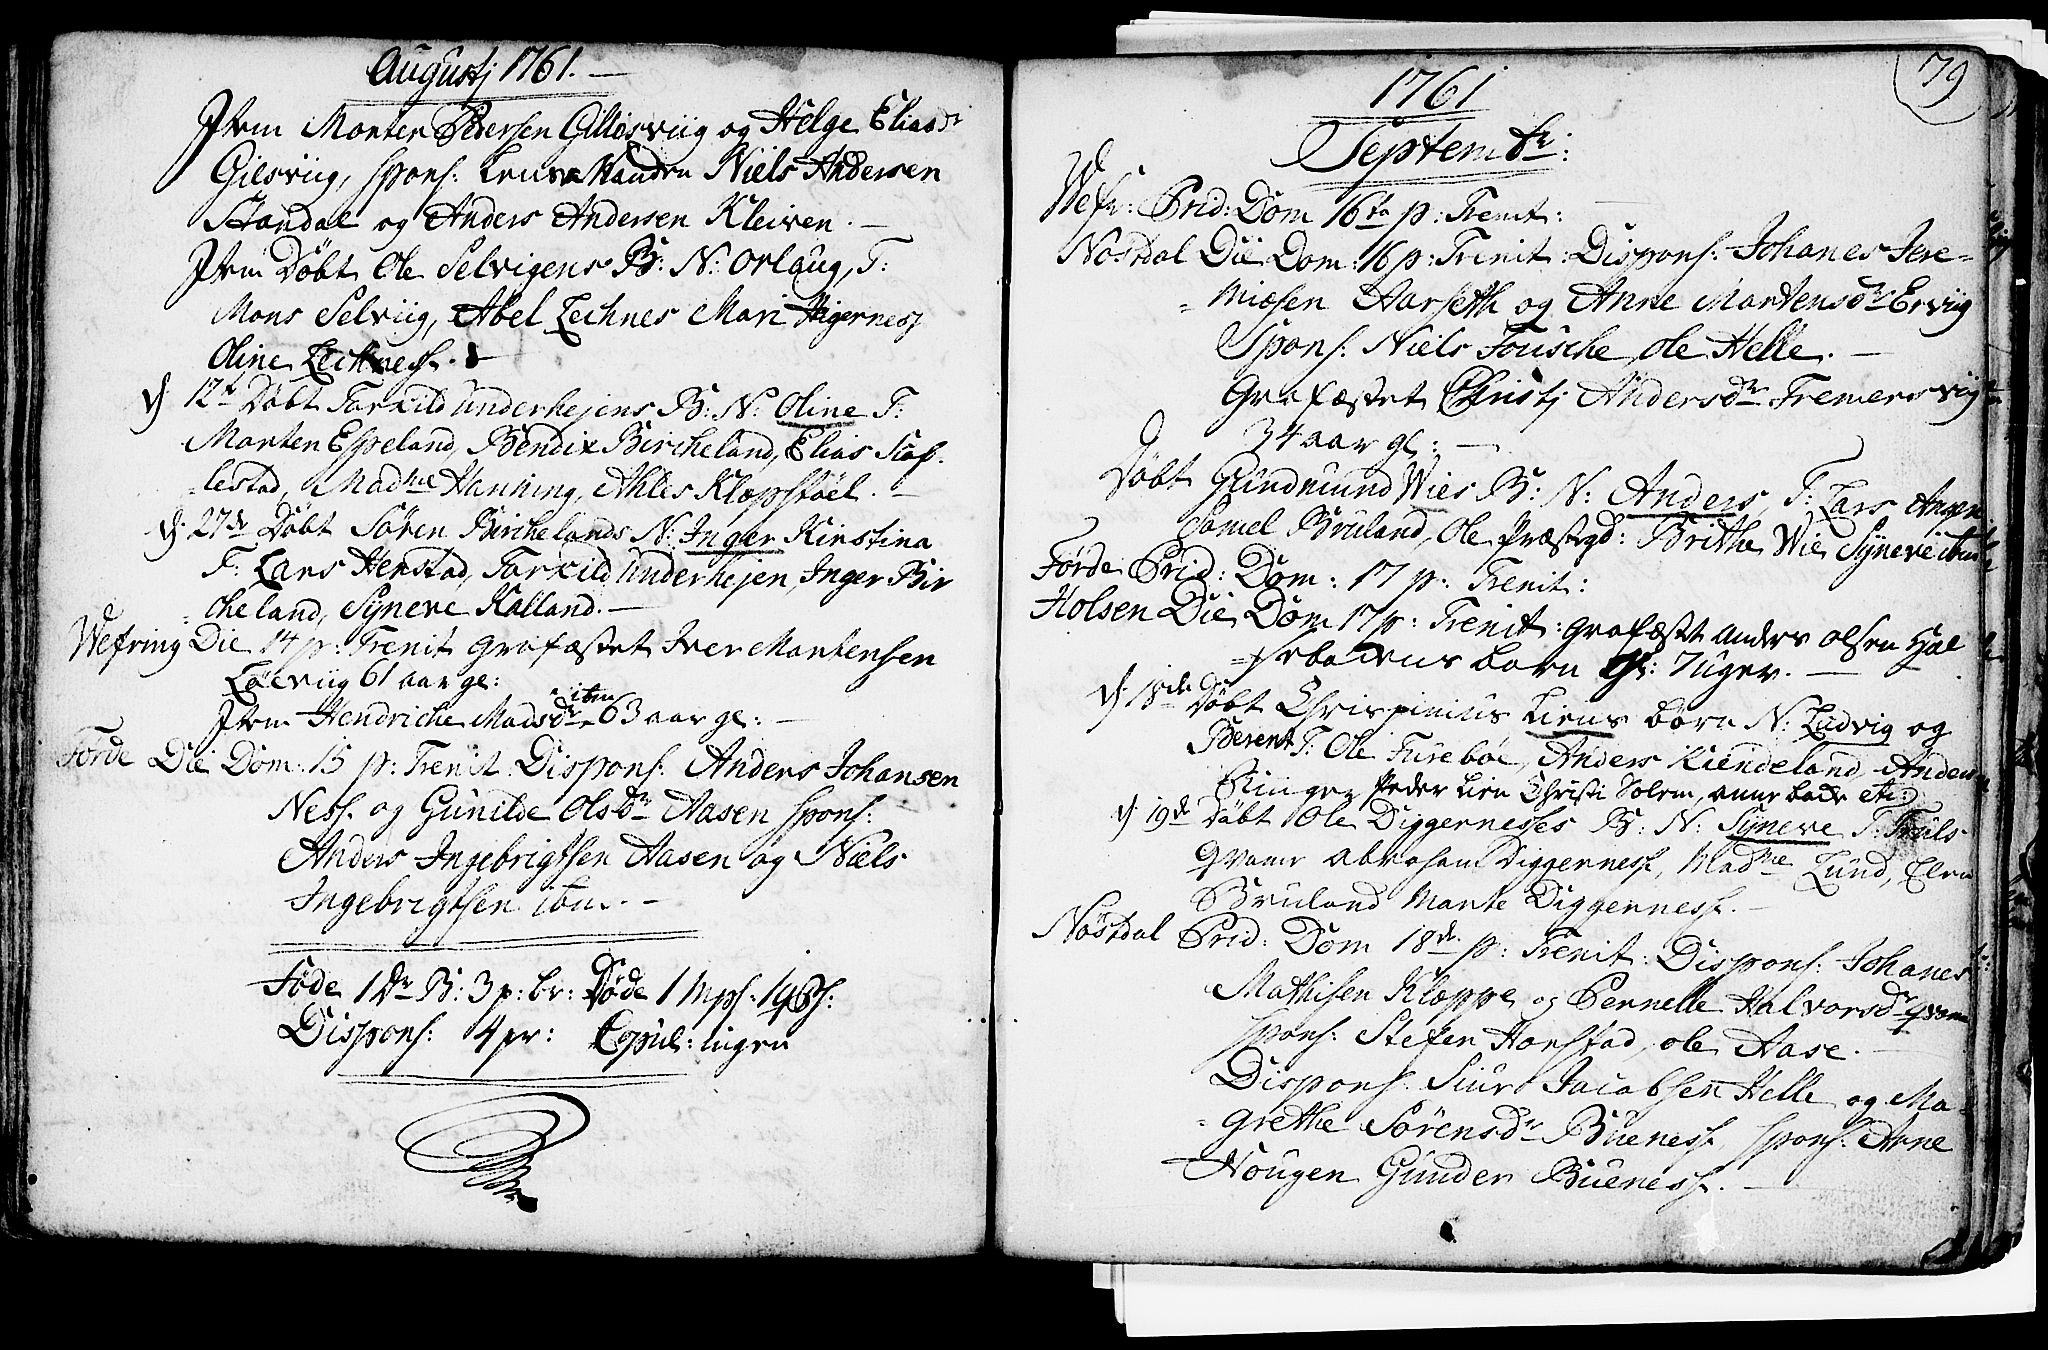 Augustj 1761.
Item Morten Pedersen Gillesviig og Helge Eliasdr
Gilsviig, spons: Niels Andersen
Standal og Anders Andersen Kleiven.
Item Döbt Ole Selvigens B: N: Orlaug, F:
Mons Selviig, Abel Lechnes Mari
Oline Lechness.
d 12te Döbt Tarkild Underhejens B: N: Oline F:
Morten Espeland, Bendix Bircheland, Elias Sief-
lestad, Madme Hanning, Ahles Klopstöel.
d: 27de Döbt Sören Birchelands N: Inger Kirstina
F: Lars Henstad, Tarkild Underhejen, Inger Bir
cheland, Syneve Kalland.
Wefring Die 14 p: Trenit grafæstet Iver Mortensen
Löeviig 61 aar gl:
Item Hendriche Madsdr ibm 63 aar gl:
Förde Die Dom: 15 p: Trenit: Dispons: Anders Johansen
Ness og Gunilde Olsdr Aasen spons:
Anders Ingebrigtsen Aasen og Niels
Ingebrigtsen ibm.
Föde 1 Dr B: 3 p: br: Döde 1 Mps: 1 qps:
Dispons: 4 pr: Copul: ingen
79
1761
Septembr:
Wefr: Prid: Dom 16ta p: Trenit:
Nostdal Die Dom: 16 p: Trenit: Dispons: Johanes Jere-
miæsen Aarseth og Anne Mortensdr Erviig
Spons: Niels Fousche, Ole Helle.
Grafæstet Christj Andersdr Fremersvig
34 aar gl:
Döbt Gundmund Wies B: N: Anders, F: Lars Angen
Samel Bruland, Ole Præstgd: Brithe Wie Syneve ibm
Förde Prid: Dom: 17 p: Trenit:
Holsen Die Dom 17 p: Trenit: grafæstet Anders Olsen Hjal
-sebackens barn gl: 7 uger.
d: 18de Döbt Chrispinius Liens börn N: Ludvig og
Berent F: Ole Fureböe, Anders Kiendeland, Anders
Ringer Peder Lien Christi Solem, Anne
d 19de Döbt Ole Diggernesses B: N: Syneve F: Truls
Qvame Abraham Diggerness, Madme Lund, Elen
Bruland Marte Diggerness.
Nöstdal Prid: Dom 18de p: Trenit: Dispons: Johanes
Mathisen Kloppe og Pernelle Halvorsdr Qvame
spons: Stefen Horstad, Ole Aase.
Dispons: Siur Jacobsen Helle og Ma-
grethe Sörensdr Bueness, spons: Arne
Nougen Gunder Bueness.